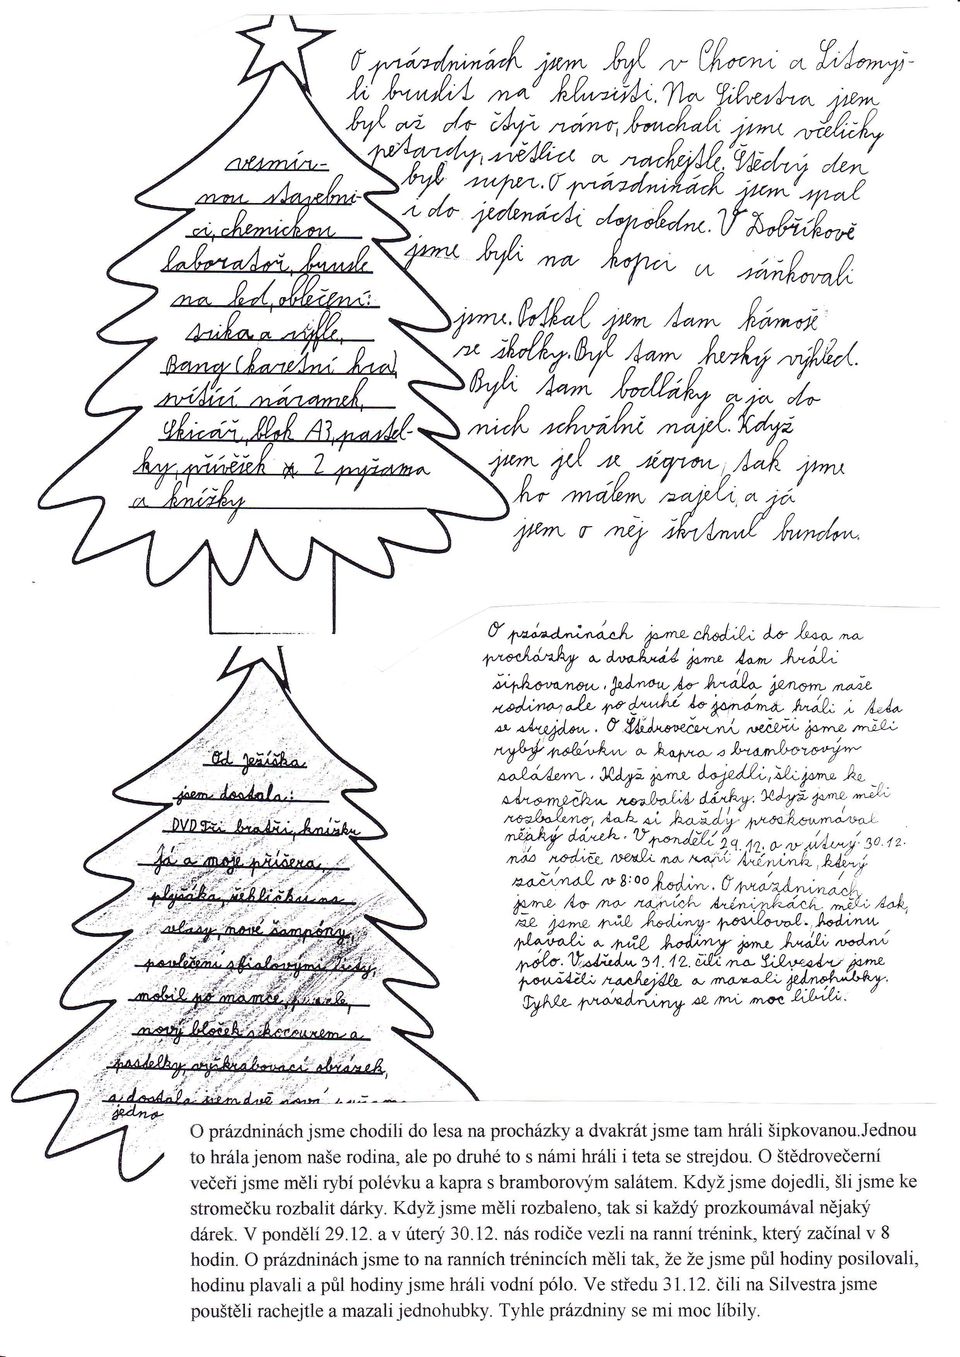 vesmír-
nou stavebni-
ci, chemickou
laboratoř, brusle
na led, oblečení:
trika a rifle,
Bang (karetní hra)
svítící náramek,
Skicář, blok A3, pastel-
ky, přívěšek 2 pyžama
a knížky
O prázdninách jsem byl v Chocni a Litomyš-
li bruslit na kluzišti. Na Silvestra jsem
byl až do čtyř ráno, bouchali jsme včeličky
petardy, světlice a rachejtle. Štědrý den
byl super. O prázdninách jsem spal
i do jedenácti dopoledne. V Dobříkově
jsme byli na kopci a sáňkovali
jsme. Potkal jsem tam kámoše
ze školky. Byl tam hezký výhled.
Byli tam bodláky a ja do
nich schválně najel. Když
jsem jel se ségrou, tak jsme
ho málem zajeli, a já
jsem o něj škrtnul bundou.
Od Ježíška
jsem dostala:
DVD Tři bratři, knížku
Já a moje příšera,
plyšáka, žehličku na
vlasy, nové šampóny,
povlečení s fialovými listy,
mobil po mamce, puzzle,
nový bloček s kocourem a
pastelky, vyškrabovací obrázek,
a dostala jsem dvě nový
jedno
O prázdninách jsme chodili do lesa na
procházky a dvakrát jsme tam hráli
šipkovanou. Jednou to hrála jenom naše
rodina, ale po druhé to s náma hráli i teta
se strejdou. O Štědrovečerní večeři jsme měli
rybý polévku a kapra s bramborovým
salátem. Když jsme dojedli, šli jsme ke
stromečku rozbalit dárky. Když jsme měli
rozbaleno, tak si každý prozkoumával
nějaký dárek. V pondělí 29.12. a v úterý 30.12.
nás rodiče vezli na raní trénink, který
začínal v 8:00 hodin. O prázdninách
jsme to na raních trénincích měli tak,
že jsme půl hodiny posiloval. hodinu
plavali a půl hodiny jsme hráli vodní
pólo. V středu 31.12. čili na Silvestr jsme
pouštěli rachejtle a mazali jednohubky.
Tyhle prázdniny se mi moc líbili.
O prázdninách jsme chodili do lesa na procházky a dvakrát jsme tam hráli šipkovanou.Jednou
to hrála jenom naše rodina, ale po druhé to s námi hráli i teta se strejdou. O štědrovečerní
večeři jsme měli rybí polévku a kapra s bramborovým salátem. Když jsme dojedli, šli jsme ke
stromečku rozbalit dárky. Když jsme měli rozbaleno, tak si každý prozkoumával nějaký
dárek. V pondělí 29.12. a v úterý 30.12. nás rodiče vezli na ranní trénink, který začínal v 8
hodin. O prázdninách jsme to na ranních trénincích měli tak, že že jsme půl hodiny posilovali,
hodinu plavali a půl hodiny jsme hráli vodní pólo. Ve středu 31.12. čili na Silvestra jsme
pouštěli rachejtle a mazali jednohubky. Tyhle prázdniny se mi moc líbily.